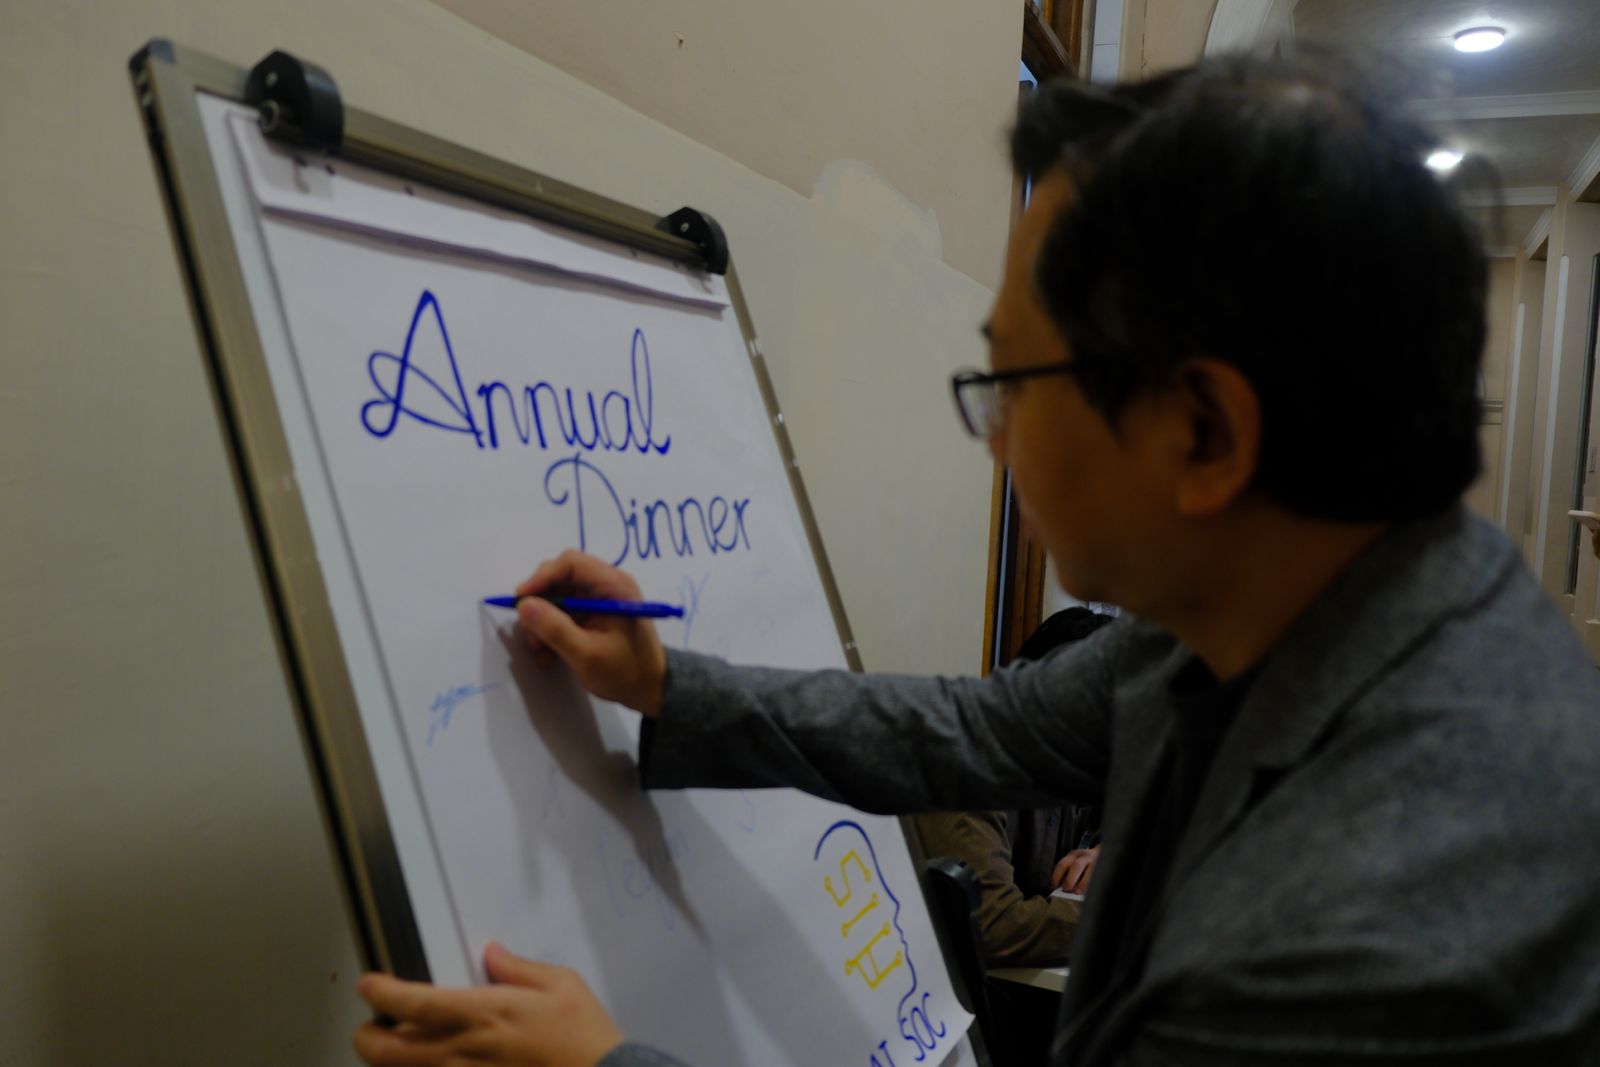 Annual
Dinner
SIH
AI SOC